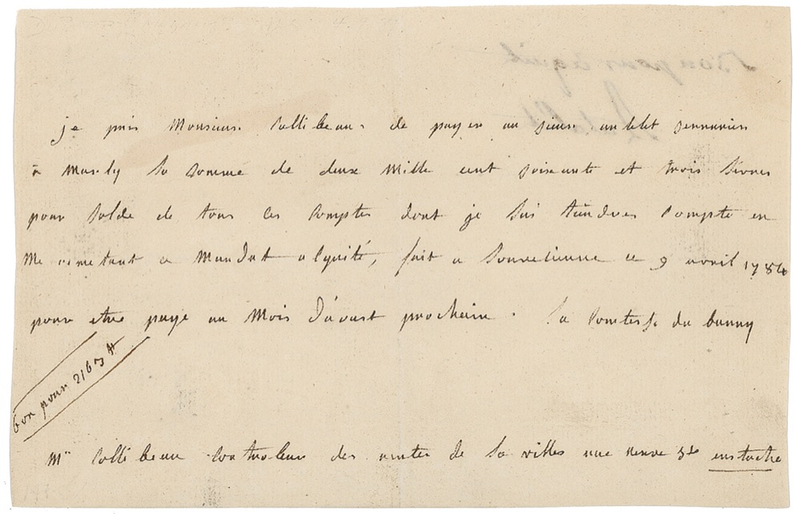 je prie Monsieur Collibeaux de payer au sieur serrurier
a Marly la somme de deux Mille cent soisante et trois livres
pour solde de tous ces comptes dont je lui tiendres compte en
me remetant ce Mandat alquité, fait a Louvetienne ce 9 avril 1784
pour etre paye au Mois Davost prochaine . La Comtesse du barry
bon pour 2163 ₶
Mr Collibeau controleur des rentes de la villes rue neuve St eustache
Bon pour